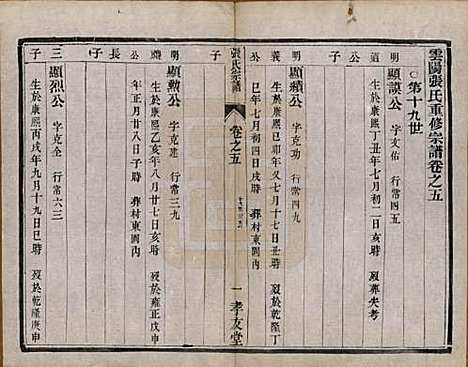 雲陽張氏重修宗譜卷之五
○第十九世
顯謨公 字友佑 行常四五
道明公子
生於康熙丁丑年七月初二日亥時 歿葬失考
顯績公 字克功 行常四九
明義公子
生於康熙己卯年又七月十七日丑時 歿於乾隆丁
巳年七月初四日戌時 葬村東園內
張氏宗譜
卷之五
一 孝友堂
顯勲公 字克建 行常三九
明公長子
生於康熙乙亥年八月廿七日亥時 歿於雍正戊申
年正月廿八日子時 葬村東園內
顯公 字克全 行常六三
三子
生於康熙丙戌年九月十九日巳時 歿於乾隆庚申